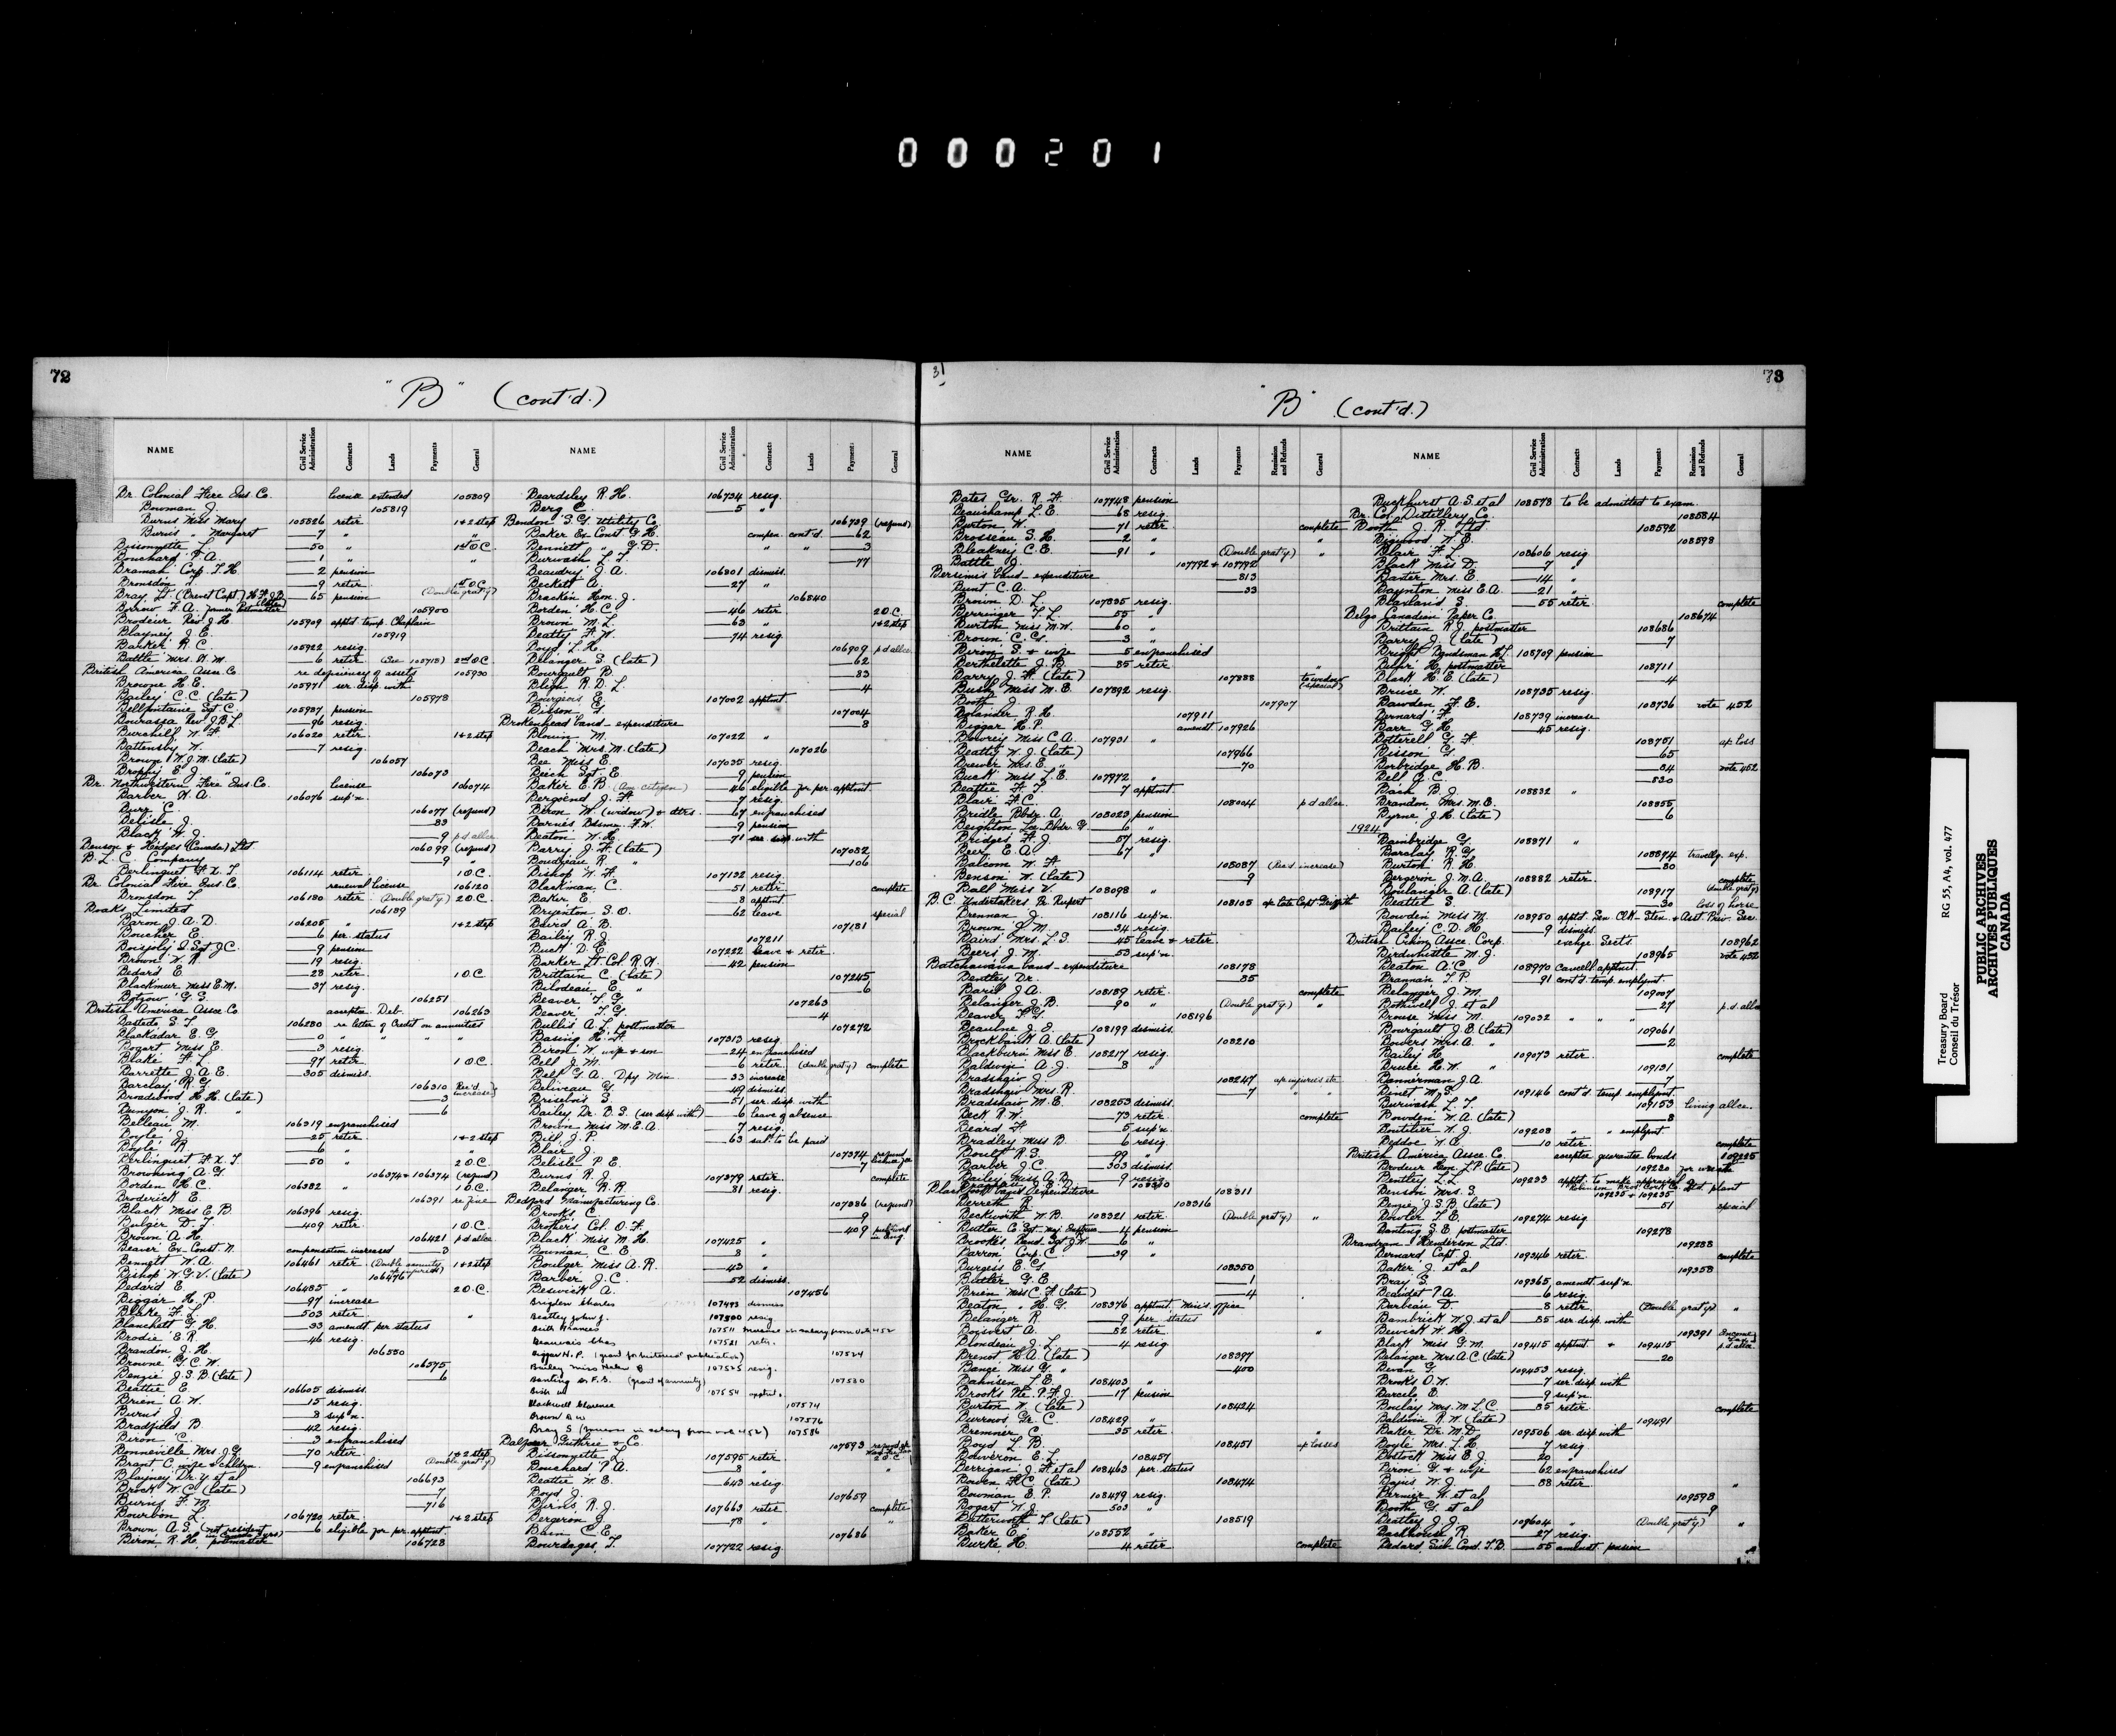 000201
72
"B" (cont'd.)
NAME Civil Service Administration Contracts Lands Payments General NAME Civil Service Administration Contracts Lands Payments General
Br. Colonial Fire Ins. Co. license extended 105809
Bowman J. 105819
Burns Miss Mary 105826 retir 1&2 step
Burns " Margaret —7 " "
Bissonnette L. —50 " 1st O.C.
Bouchard P.A. —1 " "
Braman Corp. T.H. —2 pension
Bronsdon T. —9 retir 1st O.C.
Bray Lt. (Brevet Capt.) —65 pension (Double grat'y)
Borrow F.A. former Postmaster 105900
Brodeur Rev J.H. 105909 apptd temp. Chaplain
Blayney J.E. 105919
Barker R.C. 105922 resig.
Battle Mrs. —6 retir 2nd O.C.
British America Assce Co. re deficiency of assets 105930
Browne H.E. 105971 ser. disp. with
Bailey C.C. (late) 105978
Bellfontaine Sgt. C. 105987 pension
Bourassa Rev J.B.L. —96 resig.
Burchill W.F. 106020 retir. 1&2 step
Battensby W. —7 resig.
Brown W.J.M. (late) 106057
Brophy E.J. " 106073
Br. Northwestern Fire Ins. Co. license 106074
Barber W.A. 106076 sup'n.
Burr C. 106077 (refund)
Belisle J. —83
Black W.J. —9 p.d. allce
Benson & Hedges (Canada) Ltd 106099 (refund)
B.L.C. Company —9 "
Berlinguet F.X.T. 106114 retir 1 O.C.
Br. Colonial Fire Ins. Co. renewal license 106120
Bronsdon T. 106180 retir (Double grat'y.) 2 O.C.
Boaks Limited 106189
Baron J.A.D. 106205 " 1&2 step
Boucher E. —6 per. status
Boisjoly S. Sgt J.C. —9 pension
Brown W.R. —19 resig.
Bedard E. —28 retir. 1 O.C.
Blackmur Miss E.M. —37 resig.
Botzow G.S. 106251
British America Assce Co. acceptce Deb. 106263
Bastedo S.T. 106280 re letter of Credit on annuities
Blackadar E.G. —0 " " " "
Bogart Miss E. —3 resig.
Blake F.L. —97 retir 1 O.C.
Barrette J.A.E. —305 dismiss.
Barclay R.G. 106310 Rev'd increase
Broadwood H.H. (late) —3
Bunyon J.R. " —6
Belleau M. 106319 enfranchised
Boyle J. —25 retir. 1&2 step
Boyle R. —6 " "
Berlinguet F.X.T. —50 " 2 O.C.
Browning A.G. 106374 & 106374 (refund)
Borden H.C. 106382 " 1 O.C.
Broderick E. 106391 re fine
Black Miss E.B. 106396 resig.
Bulger D.J. —409 retir. 1 O.C.
Brown A.H. 106421 p.d. allce
Beaver Ex-Const. N. compensation increased —3
Bennett W.A. 106461 retir 1&2 step
Bishop W.G.V. (late) 106476
Bedard E. 106485 " 2 O.C.
Biggar H.P. —97 increase
Blake F.L. —503 retir. "
Blanchett G.H. —33 amendt. per status
Brodie E.R. —46 resig.
Brandon J.H. 106550
Browne G.C.W. 106575
Benzie J.S.B. (late) —6
Beattie E. 106605 dismiss.
Brien A.W. —15 resig.
Burns J. —8 sup'n.
Bradfield B. —42 resig.
Biron C. —3 enfranchised
Bonneville Mrs. J.G. —70 retir. 1&2 step
Brant C. wife & chldrn. —9 enfranchised (Double grat'y)
Blayney Dr. Y. et al 106693
Brock W.C. (late) —7
Burns F.M. —716
Bourbon L. 106720 retir. 1&2 step
Brown A.S. (not resident in Canada 5 yrs) —6 eligible for per. apptmt.
Biron R.H. postmaster 106728
Beardsley R.H. 106734 resig.
Berg C. —5 "
Bendon S.G. Utility Co. 106739 (refund)
Baker Ex Const G.H. compen. cont'd. —62
Bennett G.D. " " —3
Burwash L.T. —77
Beaudry J.A. 106801 dismiss.
Beckett A. —27 "
Bracken Hon. J. 106840
Borden H.C. —46 retir 2 O.C.
Brown M.L. —63 " 1&2 step
Beatty F.W. —74 resig.
Boyd L.H. 106909 p.d. allce
Belanger S. (late) —62
Bourgault B. —83
Bligh R.D.L. —4
Bourgeois E. 107002 apptmt.
Bisson G. 107004
Brokenhead band - expenditure —8
Blouin M. 107022 "
Beach Mrs. M. (late) 107026
Bee Miss E. 107035 resig.
Beich Sgt E. —9 pension
Baker E.B. (Am. citizen) —46 eligible for per. apptmt
Bergoend J.F. —7 resig.
Biron W. (widow) & dtrs. —67 enfranchised
Barnes Bdsmn. F.W. —9 pension
Beaton W.H. —71 ser. disp. with
Barry J.F. (late) 107082
Boudreau R. " —106
Bishop W.F. 107132 resig.
Blackman C. —51 retir complete
Baker E. —8 apptmt
Brynton S.O. —62 leave special
Baird A.B. 107181
Bailey R.J. 107211
Buck D.E. 107222 leave & retir.
Barker Lt. Col. R.W. —42 pension
Brittain C. (late) 107245
Bilodeau E. " —6
Beaver T.G. 107263
Beaver T.G. —4
Bullis A.L. postmaster 107272
Basing H.F. 107313 resig.
Biron W. wife & son —24 enfranchised
Bell J.M. —6 retir (double grat'y) complete
Bell G.A. Dpy Min —33 increase
Beliveau G. —49 dismiss.
Brisebois S. —51 ser. disp. with
Bailey Dr. B.S. (ser disp with) —6 leave of absence
Brown Miss M.E.A. —7 resig.
Bill J.P. —63 sal. to be paid
Blair J. 107374 refund
Belisle P.E. —7
Burns R.J. 107379 retir. complete
Belanger R.R. —81 resig.
Bedford Manufacturing Co. 107386 (refund)
Brooks C. —9
Brothers Col. O.F. —409
Black Miss M.H. 107425 "
Bowman C.E. —8 "
Boulger Miss A.R. —43 "
Barber J.C. —52 dismiss.
Beswick A. 107456
Brigden Charles 107493 dismiss
Beatty John J. 107500 resig
Beith Frances 107511 increase in salary from vote 452
Beauvais Chas 107521 retir.
Biggar H.P. (grant for historical publication) 107524
Bailey Miss Helen B 107525 resig.
Banting Dr. F.G. (grant of annuity) 107530
107554 apptmt.
Blackwell Clarence 107574
Brown D W 107576
Bray S (increase in salary from vote 452) 107586
Balfour Guthrie & Co. 107593
Bissonnette L. 107595 retir. 2 O.C.
Bouchard P.A. —8 " "
Beattie W.E. —643 resig.
Boyd J. 107659
Burns R.J. 107663 retir complete
Bergeron J. —78 " "
Bain C.E. 107686
Bourdages T. 107722 resig
31
73
"B" (cont'd.)
NAME Civil Service Administration Contracts Lands Payments Remission and Refunds General NAME Civil Service Administration Contracts Lands Payments Remission and Refunds General
Bates Gr. R.F. 107748 pension
Beauchamp L.E. —68 resig.
Burton W. —71 retir complete
Brosseau S.H. —2 " "
Bleakney C.E. —91 " (Double grat'y.) "
Battle J. 107792 & 107792
Bersimis band - expenditure —813
Bunt C.A. —33
Brown D.L. 107835 resig.
Berringer T.L. —55 "
Burton Miss M.W. —60 "
Brown C.G. —3 "
Biron S. & wife —5 enfranchised
Berthelette J.B. —85 retir. "
Barry J.F. (late) 107888 to widow (special)
Busby Miss M.E. 107892 resig.
Booth J. 107907
Bylander R.H. 107911
Biggar H.P. amendt. 107926
Bowrey Miss C.A. 107931 "
Beatty W.J. (late) 107966
Brewer Mrs. E. " —70
Buck Miss L.E. 107972 "
Beattie F.T. —7 apptmt
Blair F.C. 108004 p.d. allce.
Bridle Bbdr. A. 108023 pension
Beighton La. Bbdr. G. —6 "
Bridges F.J. —57 resig.
Beer E.A. —67 "
Balcom W.F. 108087 (Rev'd increase)
Benson W. (late) —9
Ball Miss V. 108098 "
B.C. Undertakers Pr. Rupert 108105 a/c late Capt. Griffith
Brennan J. 108116 sup'n.
Brown J.M. —34 resig.
Baird Mrs. L.S. —45 leave & retir.
Beers J.M. —53 sup'n.
Batchawana band - expenditure 108178
Bentley Dr. —85
Baril J.A. 108189 retir. complete
Belanger J.B. —90 " (Double grat'y.) "
Beaver F.G. 108196
Beaulne J.E. 108199 dismiss.
Brockbank A. (late) 108210
Blackburn Miss E. 108217 resig.
Baldwin A.J. —8 "
Bradshaw J. 108247 a/c injuries etc
Bradshaw Mrs. R. —7 " "
Bradshaw M.E. 108253 dismiss.
Beck R.W. —73 retir. complete
Beard F. —5 sup'n
Bradley Miss B. —6 resig.
Boult R.S. —99 "
Barber J.C. —303 dismiss.
Bailey Miss A.B. —9 resig.
108310
Blackfoot band expenditure 108311
Berreth R. 108316
Beckworth W.B. 108321 retir. (Double grat'y) "
Butler Co. Sgt. Maj. —4 pension
Brooks Band Sgt J.W. —6 "
Barron Corp. C. —39 "
Burgess E.G. 108350
Butler G.E. —1
Brien Miss C.F. (late) —4
Beaton " H.G. 108376 apptmt. Min's. office
Belanger R. —9 per. status
Boisvert A. —82 retir. "
Blondeau J.L. —4 resig.
Brenot H.A. (late) 108397
Bance Miss G. " —400
Bahnsen L.E. 108403 "
Brooks Pte. P.F.J. —17 pension
Burton W. (late) 108424
Burrows Gr. C. 108429 "
Bremner C. —35 retir. "
Boyd L.B. 108451 a/c losses
Bouveron E.L. 108457
Berrigan J.F. et al 108463 per. status
Bowen H.C. (late) 108474
Bowman E.P. 108479 resig.
Bogart W.J. —503
Butterworth T. (late) 108519
Baker E. 108552 "
Burke H. —4 retir complete
Buckhurst A.S. et al 108578 to be admitted to exam.
Br. Col. Distillery Co. 108584
Booth J.R. Ltd 108592
Bigwood W.E. 108598
Blair F.L. 108606 resig
Black Miss D. —7 "
Baxter Mrs. E. —14 "
Baynton Miss E.A. —21 "
Blanland S. —55 retir. complete
Belgo Canadian Paper Co. 108674
Brittain R.J. postmaster 108686
Barry J. (late) —7
Bright Bandsman H.L. 108709 pension
Buhr H. postmaster 108711
Black H.E. (late) —4
Bruce W. 108735 resig.
Bowden F.E. 108736 vote 452
Bernard F. 108739 increase
Barr G.H. —45 resig.
Botterell G.F. 108751 a/c loss
Bisson G. —65
Borbridge H.B. —84 vote 452
Bell J.C. —830
Bain B.J. 108832 "
Brandon Mrs. M.E. 108855
Byrne J.H. (late) —6
1924
Bainbridge G. 108871 "
Barclay R.G. 108874 travellg. exp.
Burton R.H. —80
Bergeron J.M.A. 108882 retir. complete
Boulanger A. (late) 108917 (double grat'y)
Beattet S. —30 loss of horse
Bowden Miss M. 108950 apptd. Sen. Clk-Sten. & Asst. Priv. Sec.
Bailey C.D.H. —9 dismiss.
British Crown Assce. Corp. exchge Sects. 108962
Birdwhistle M.J. 108965 vote 452
Beaton A.C. 108970 Cancell apptmt.
Brannan T.P. —91 cont'd temp. emplymt.
Belanger J.M. 109007
Bothwell J. et al —27 p.d. allce
Brouse Miss M. 109032 " " "
Bourgault J.E. (late) 109061
Bowers Mrs. A. " —2
Bailey H. 109073 retir. complete
Bruce H.W. " 109131
Bannerman J.A. —7
Binet M.S. 109146 cont'd temp. emplymt.
Burwash L.T. 109153 living allce.
Bowden W.A. (late) —8
Boutilier W.J. 109208 " " emplymt.
Beddoe W.A. —10 retir. complete
British America Assce. Co. acceptce guarantee bonds. 109225
Brodeur Hon. L.P. (late) 109230 for wreath
Bentley L.L. 109233 apptd. to make appraisal
Benson Mrs. S. 109235 & 109235
Benzie J.S.B. (late) —51 special
Bowler T.E. 109274 resig.
Banting S.E. postmaster 109278
Brandram Henderson Ltd. 109288
Bernard Capt. J. 109346 retir. complete
Baker J. et al 109358
Bray S. 109365 amendt. sup'n.
Beaudet P.A. —6 resig.
Barbeau D. —8 retir. (Double grat'y) "
Bambrick W.J. et al —85 ser. disp. with
Bewick W.H. 109391 Income Tax
Black Miss G.M. 109415 apptmt. & 109415 p.d. allce.
Belanger Mrs. A.C. (late) —20
Bevan G. 109453 resig.
Brooks O.W. —7 ser. disp. with
Barcelo E. —9 sup'n.
Boulay Mrs. M.L.C. —85 retir. complete
Baldwin R.W. (late) 109491
Baker Dr. M.D. 109506 ser. disp. with
Boyle Mrs. L.H. —7 resig
Bostock Miss E.J. —20 "
Biron G. & wife —62 enfranchised
Bayes W.J. —88 retir. "
Bernier W. et al 109598
Booth G. et al —9
Beatley J.J. 109604 " (Double grat'y) "
Backhouse R. —27 resig.
Bedard Sub-Const. T.B. —55 amendt. pension
Treasury Board RG 55, A4, vol. 477
Conseil du Trésor
PUBLIC ARCHIVES
ARCHIVES PUBLIQUES
CANADA